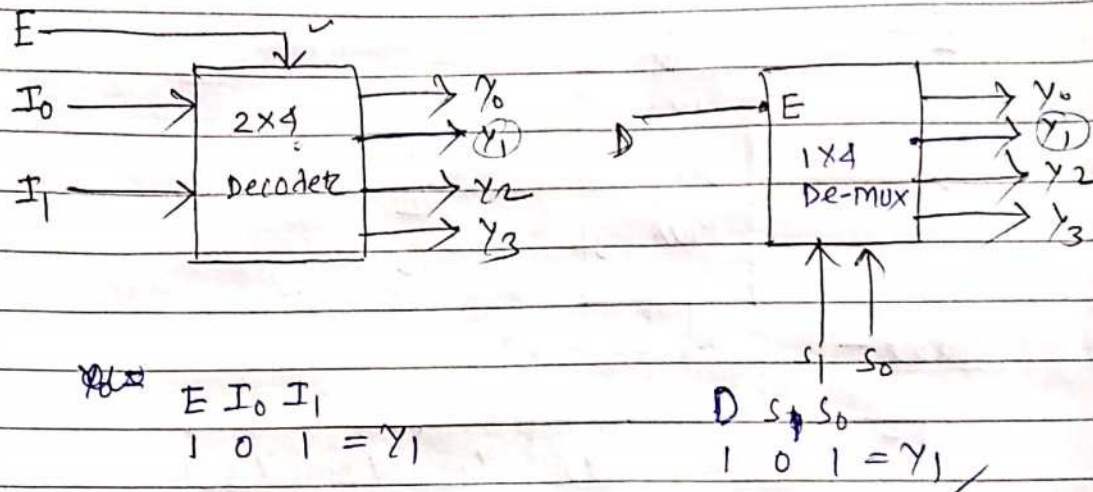 E
I₀
I₁
2×4
Decoder
Y₀
Y₁
Y₂
Y₃
D
E
1×4
De-mux
Y₀
Y₁
Y₂
Y₃
S₁ S₀
E I₀ I₁
1 0 1 = Y₁
D S₁ S₀
1 0 1 = Y₁